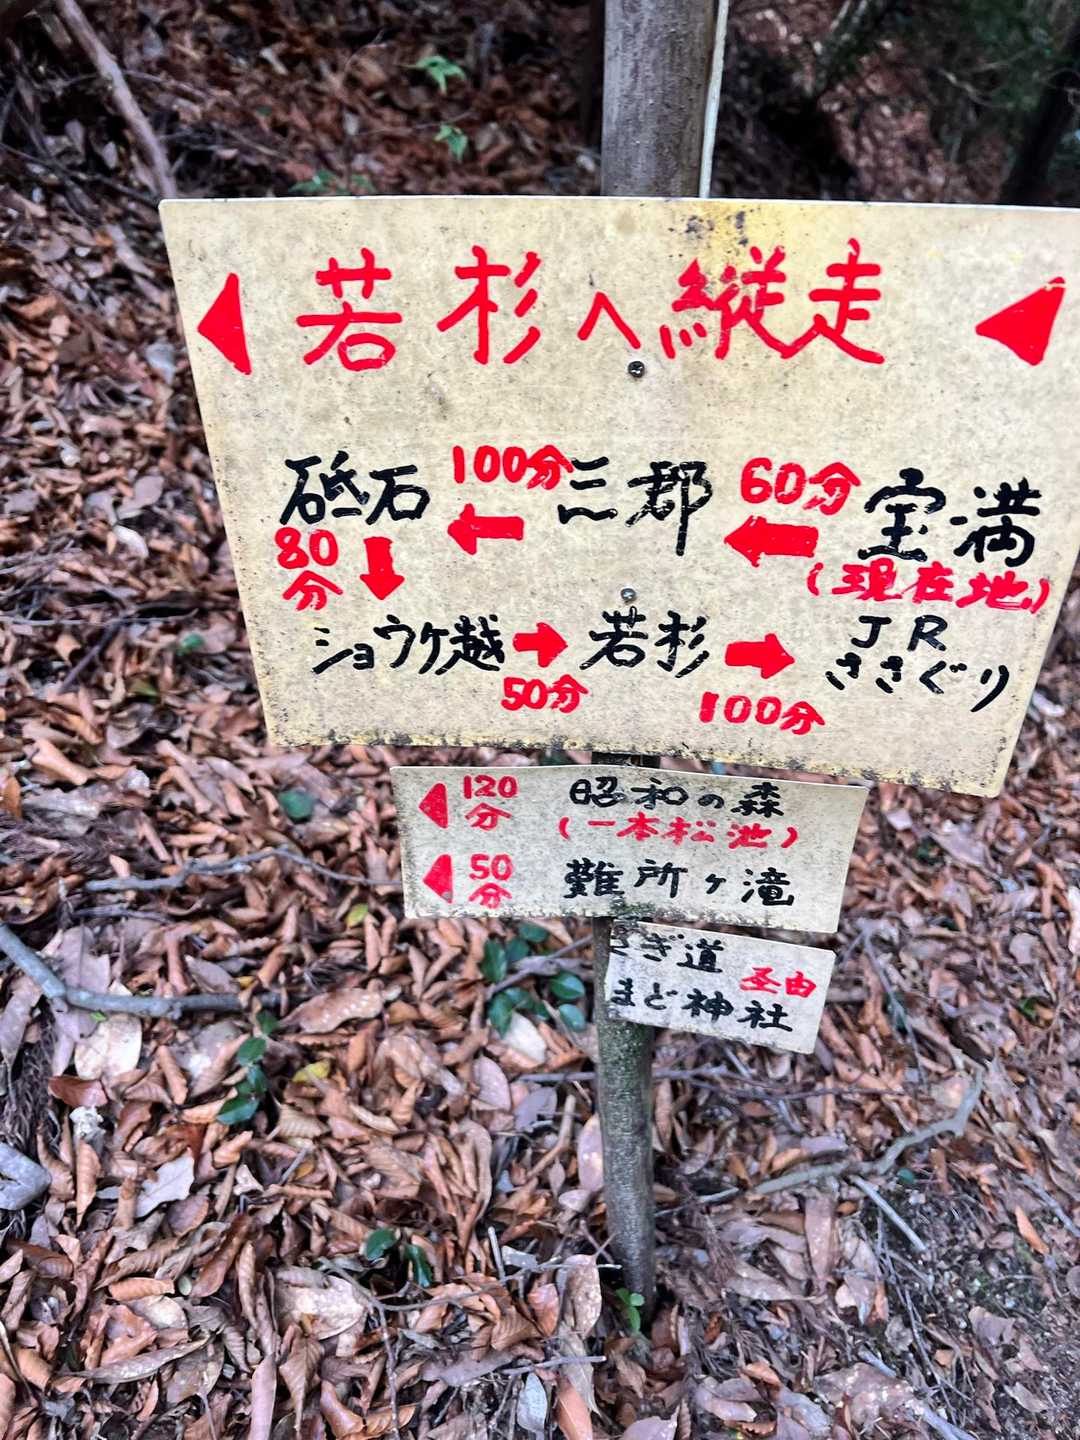 若杉へ縦走
砥石 100分 三郡 60分 宝満
80分 (現在地)
ショウケ越 若杉 JR ささぐり
50分 100分
120分 昭和の森
(一本松池)
50分 難所ヶ滝
さぎ道 圣由
まど神社